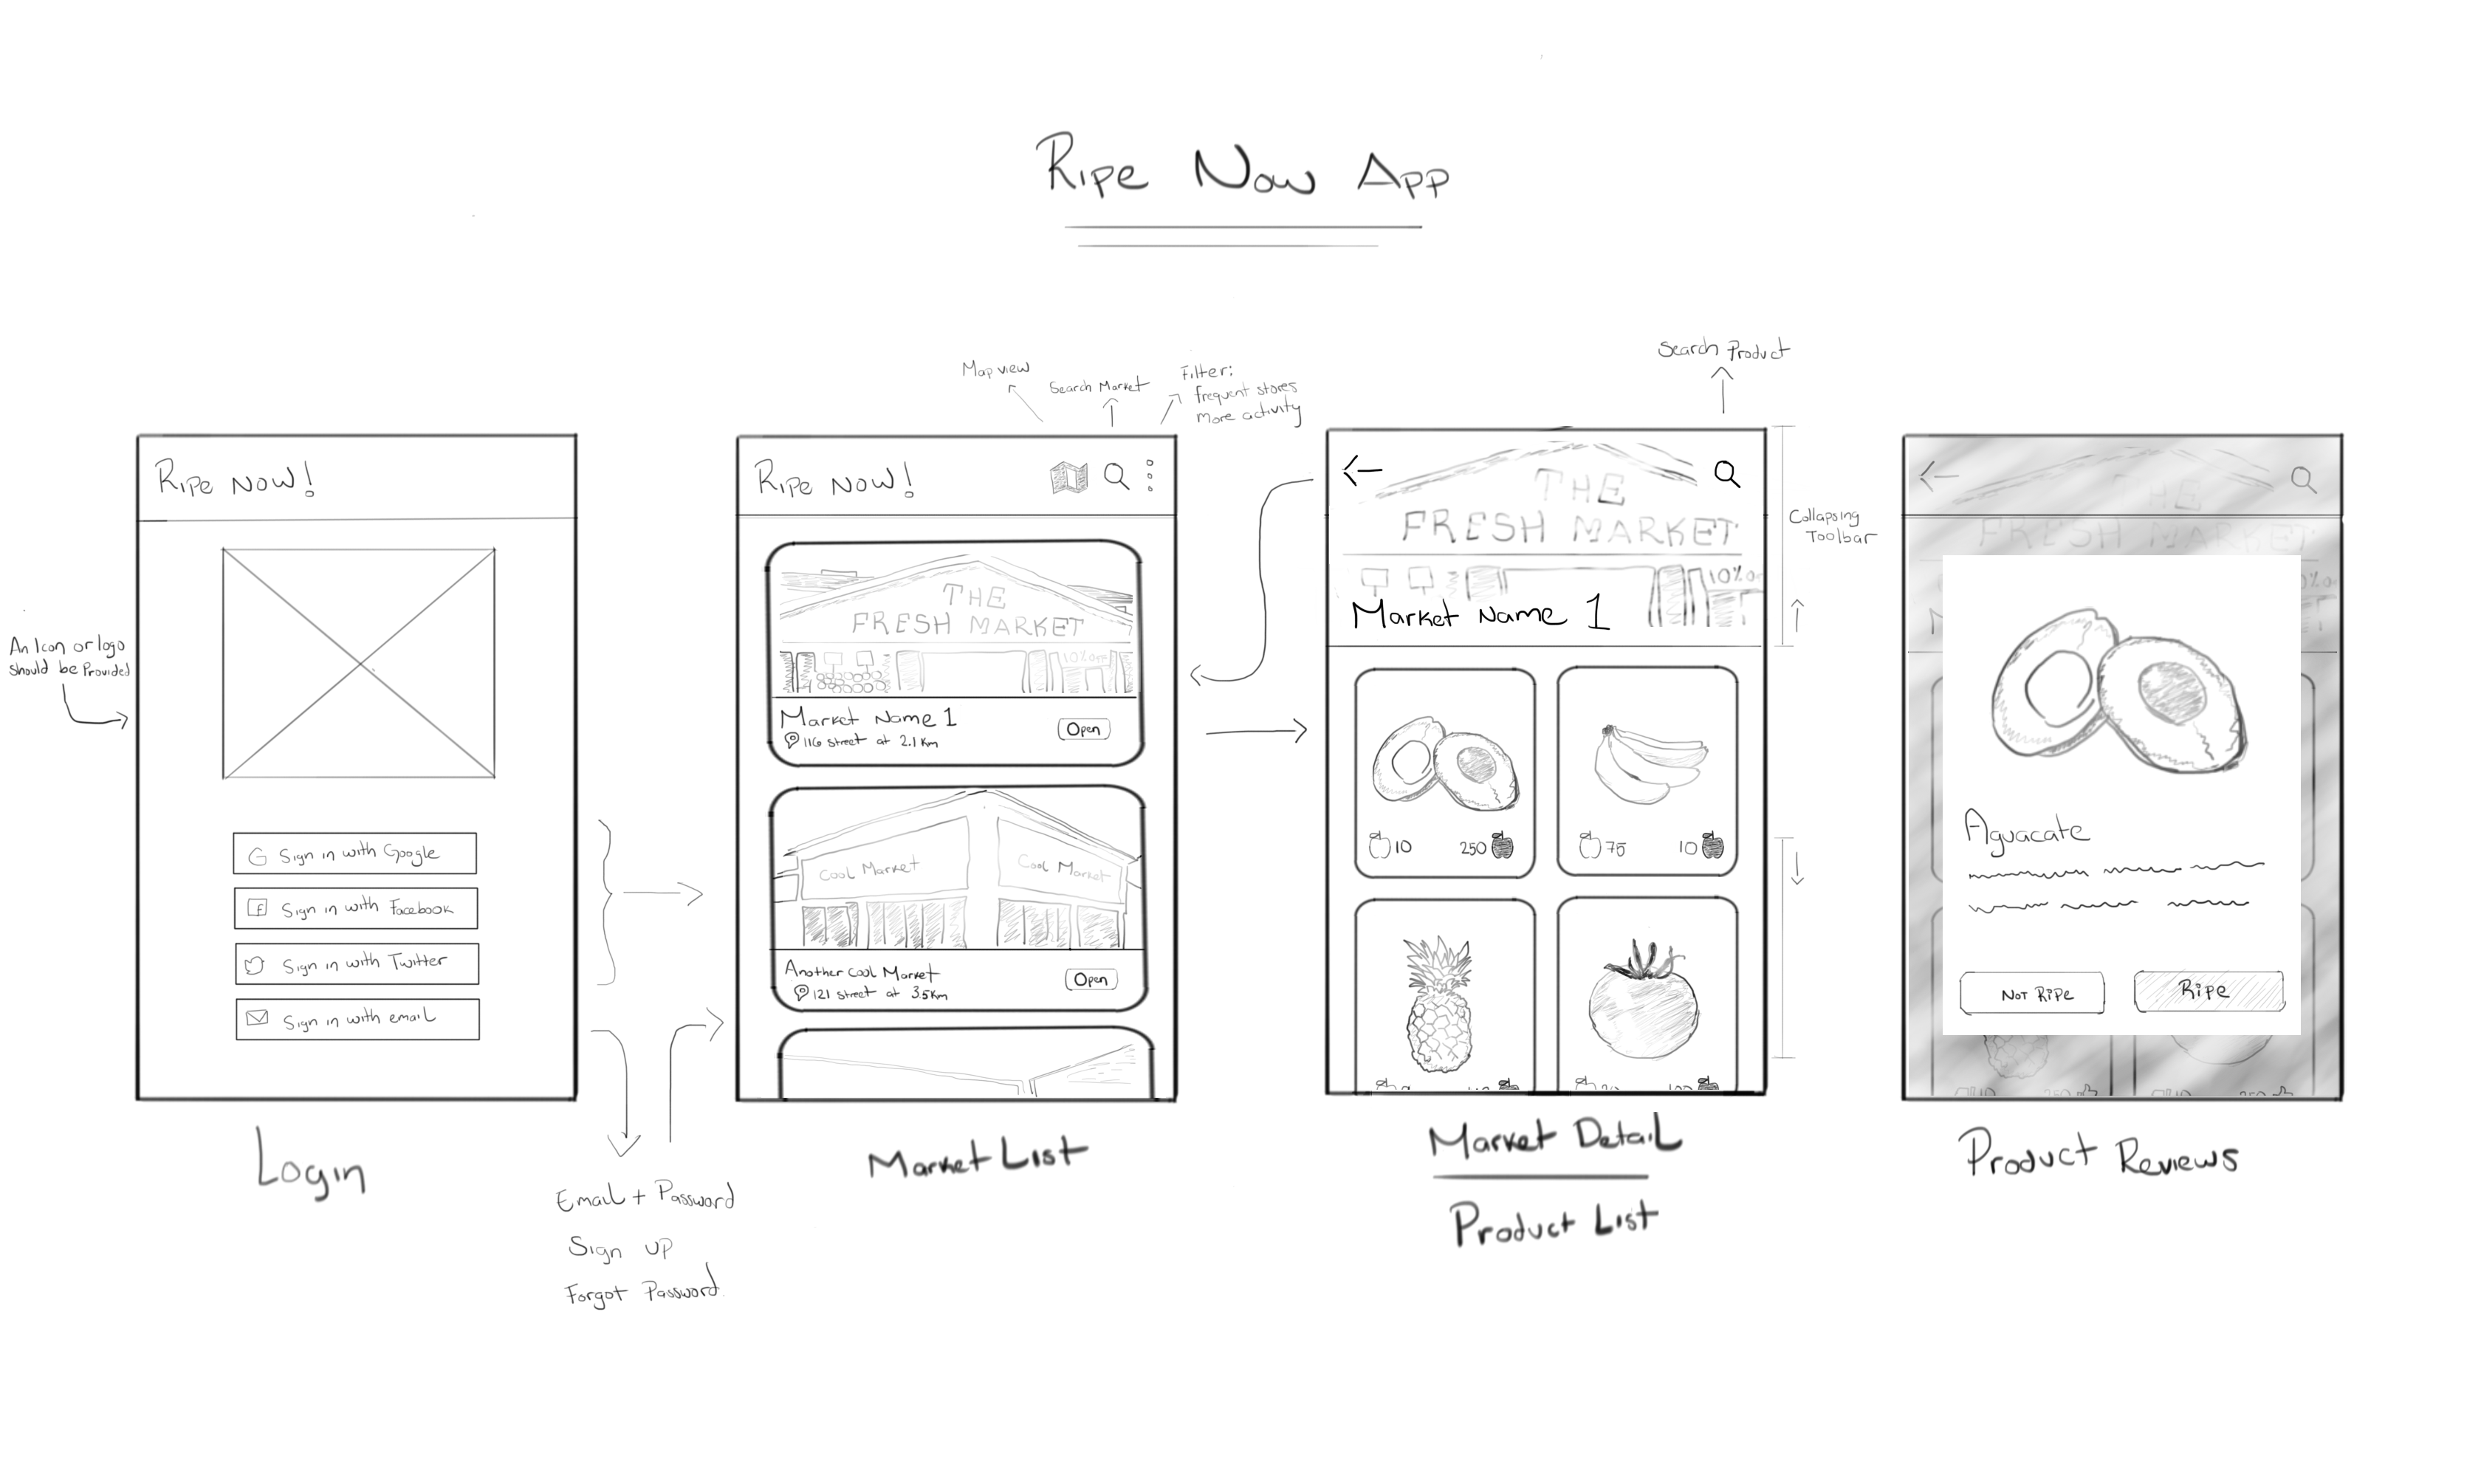 Ripe Now App
An Icon or logo
should be Provided
Ripe Now!
G Sign in with Google
f Sign in with Facebook
Sign in with Twitter
Sign in with email
Login
Email + Password
Sign up
Forgot Password.
Map view
Search Market
Filter:
frequent stores
More activity
Ripe Now!
THE
FRESH MARKET
10% OFF
Market Name 1
116 street at 2.1 Km
Open
Cool Market
Cool Market
Another Cool Market
121 street at 3.5Km
Open
Market List
Search Product
THE
FRESH MARKET
10%
Market Name 1
Collapsing
Toolbar
10 250
75 10
Market Detail
Product List
THE
FRESH MARKET
Aguacate
Not Ripe
Ripe
Product Reviews